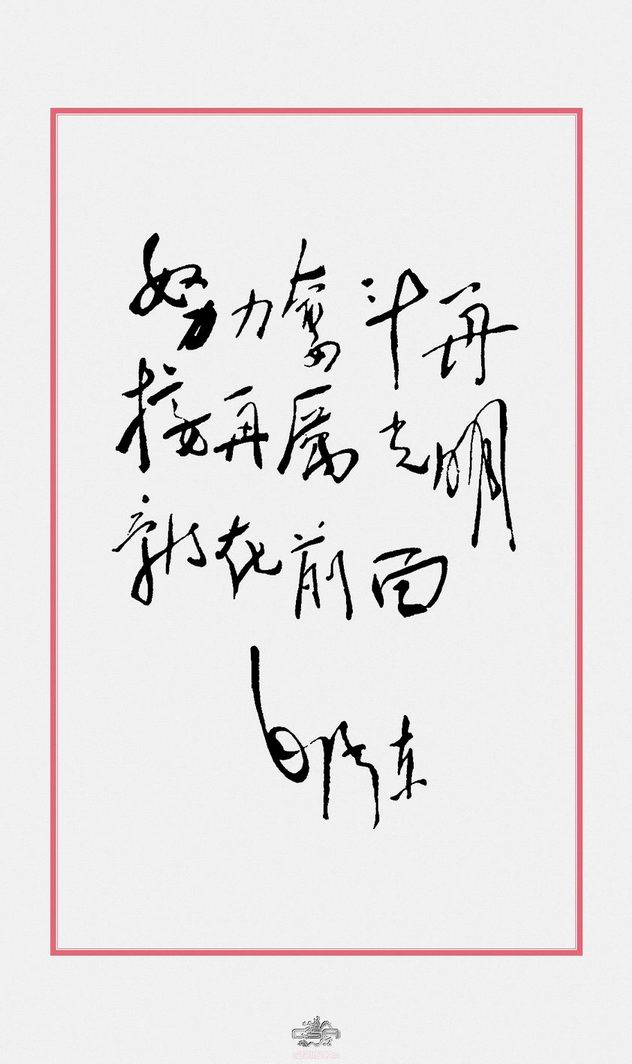 努力奮斗再
接再厲光明
就在前面
毛泽东